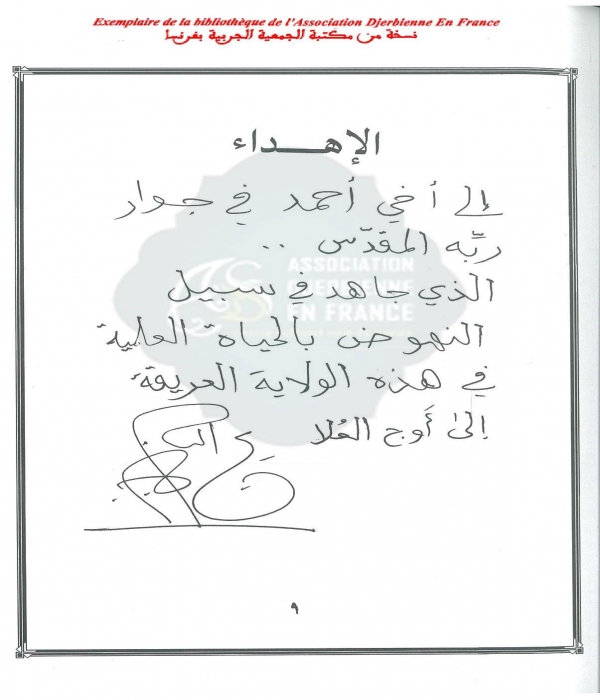 Exemplaire de la bibliothèque de l'Association Djerbienne En France
نسخة من مكتبة الجمعية الجربية بفرنسا
الإهــداء
إلى أخي أحمد في جوار
ربّه المقدّس ..
ASSOCIATION
DJERBIENNE
EN FRANCE
الذي جاهد في سبيل
النهوض بالحياة العلمية
في هذه الولاية العريقة
إلى أوج العُلا
٩